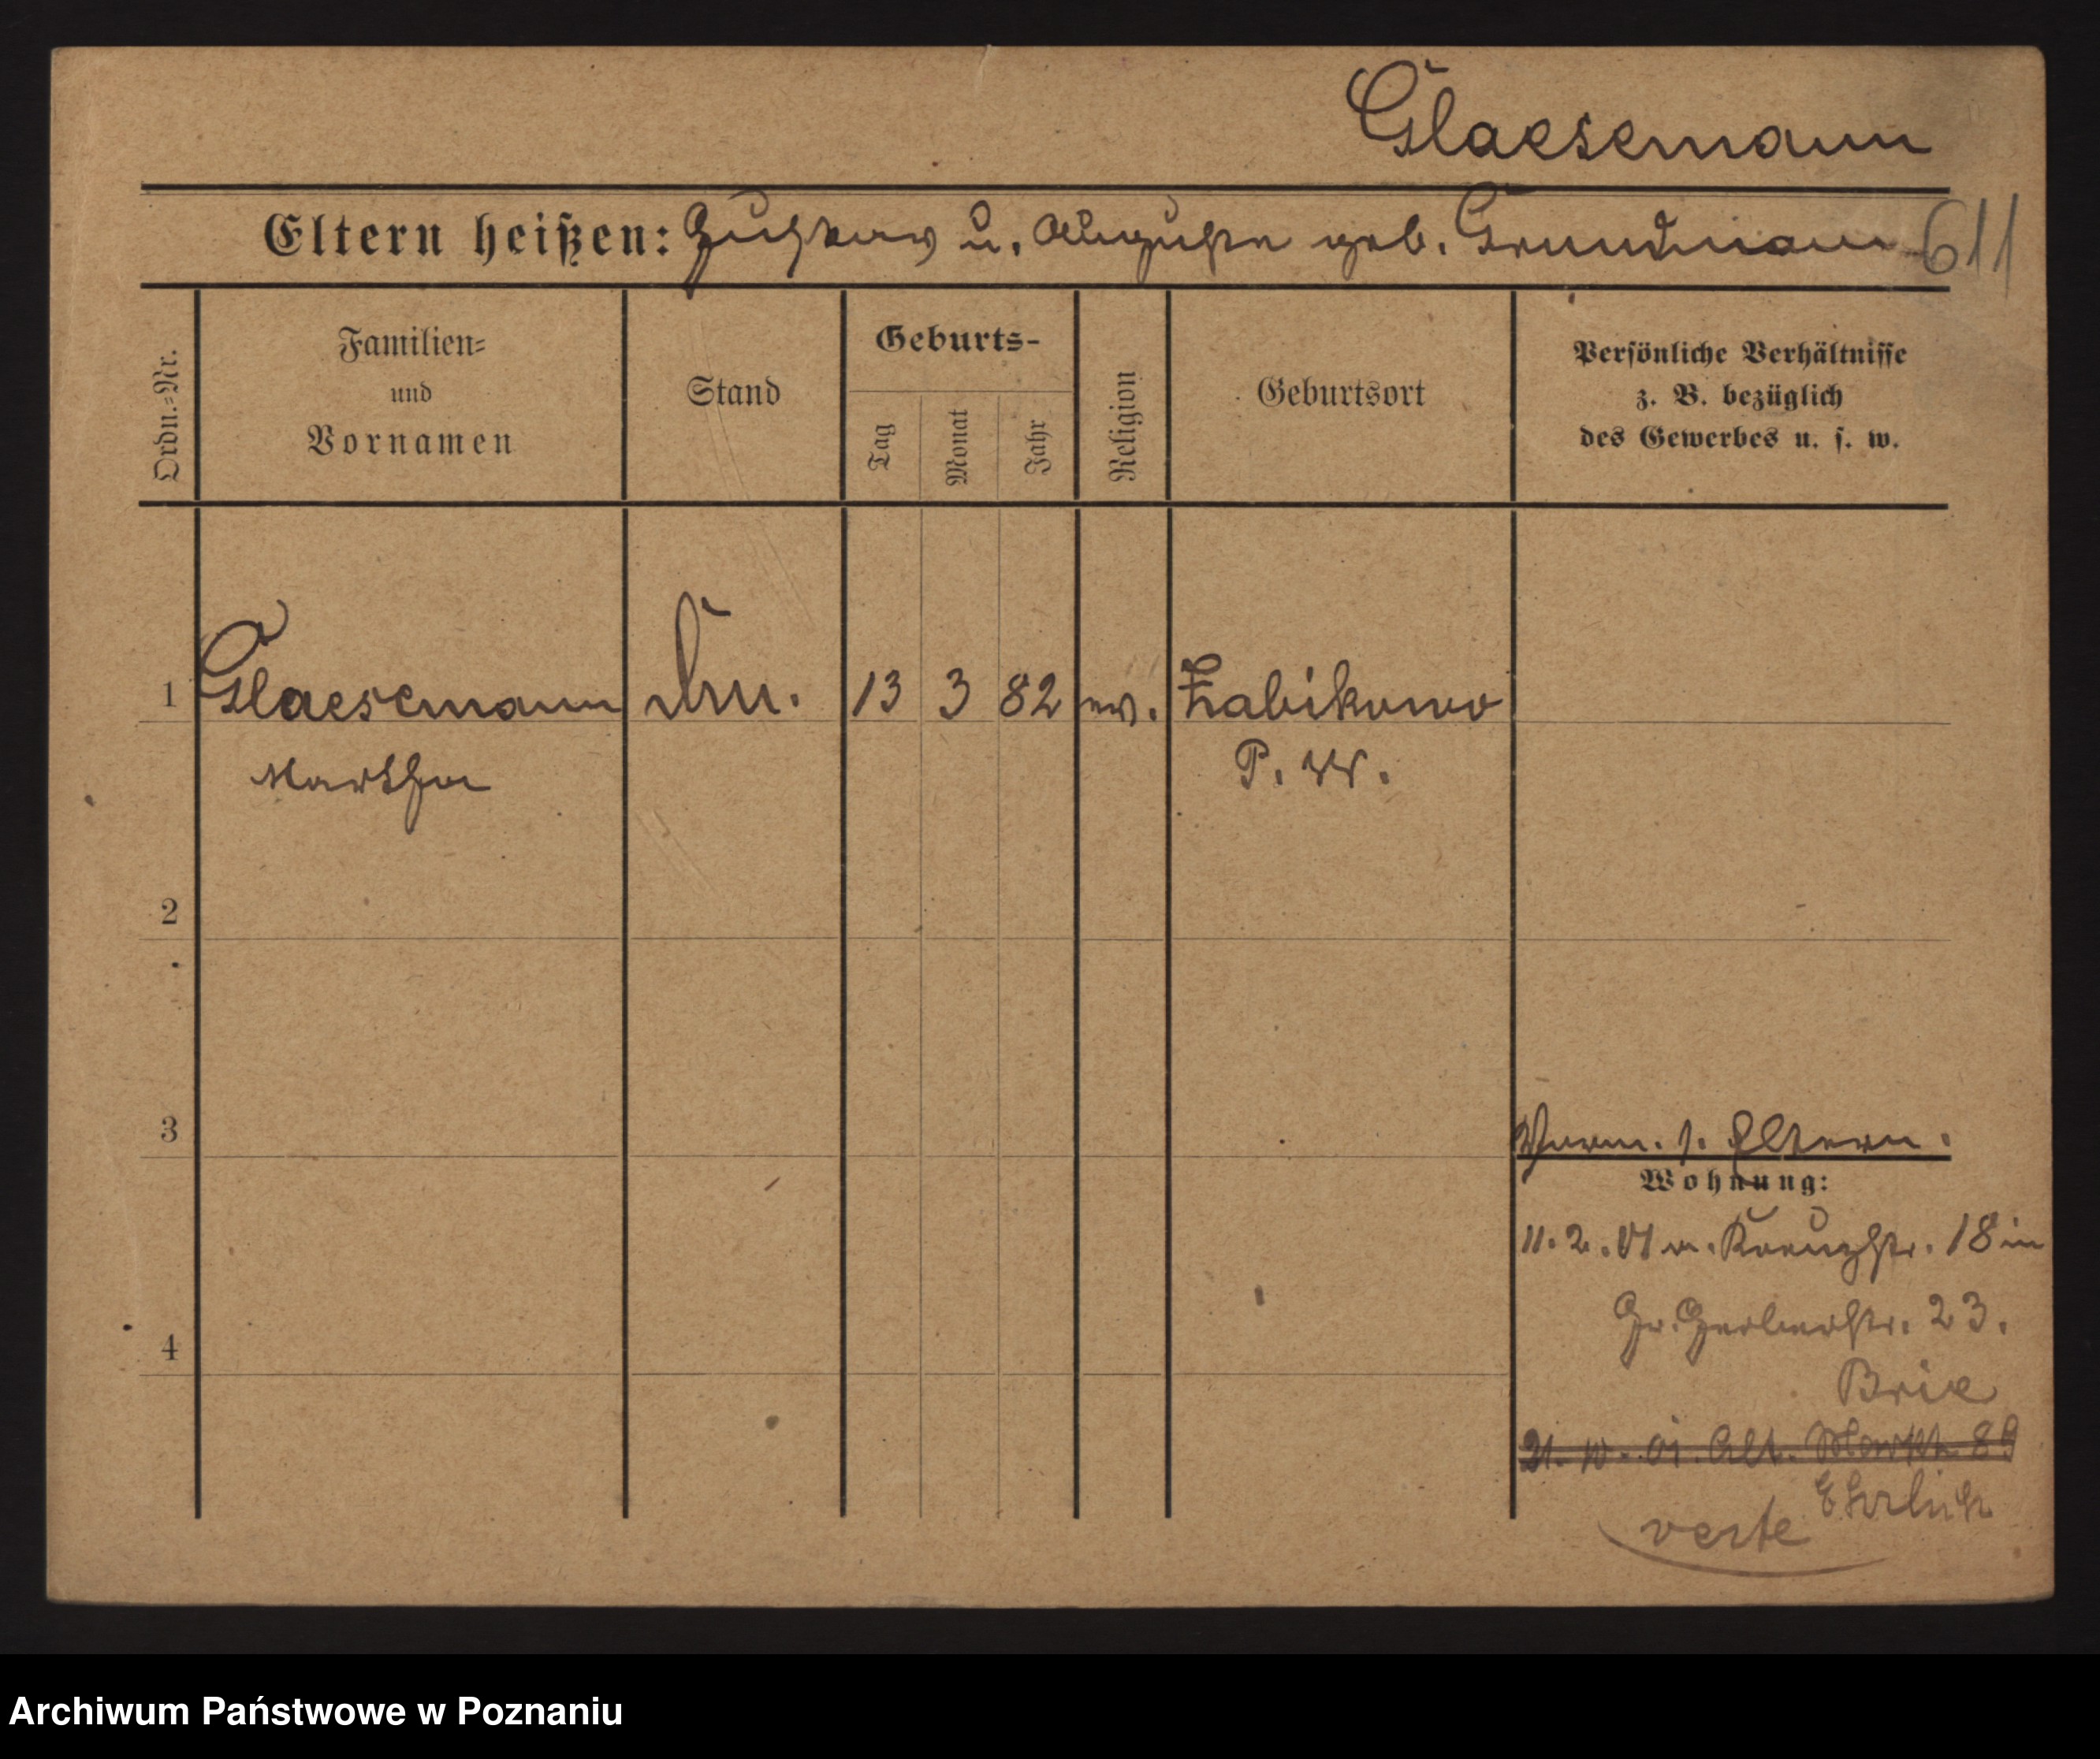 Glaesemann
Eltern heißen: Gustav u. Auguste geb. Grundmann 611
Ordn.=Nr.
Familien=
und
Vornamen
Stand
Geburts-
Tag
Monat
Jahr
Religion
Geburtsort
Persönliche Verhältnisse
z. B. bezüglich
des Gewerbes u. s. w.
1 Glaesemann 13 3 82 ev. Zabikowo
Martha P. W.
2
3
s. Eltern.
Wohnung:
11. 2. 01 v. Kreuzstr. 18 in
Gr. Gerberstr. 23.
Brix
4
21. 10. 01. Alt. Markt 89
Ehrlich
verte
Archiwum Państwowe w Poznaniu